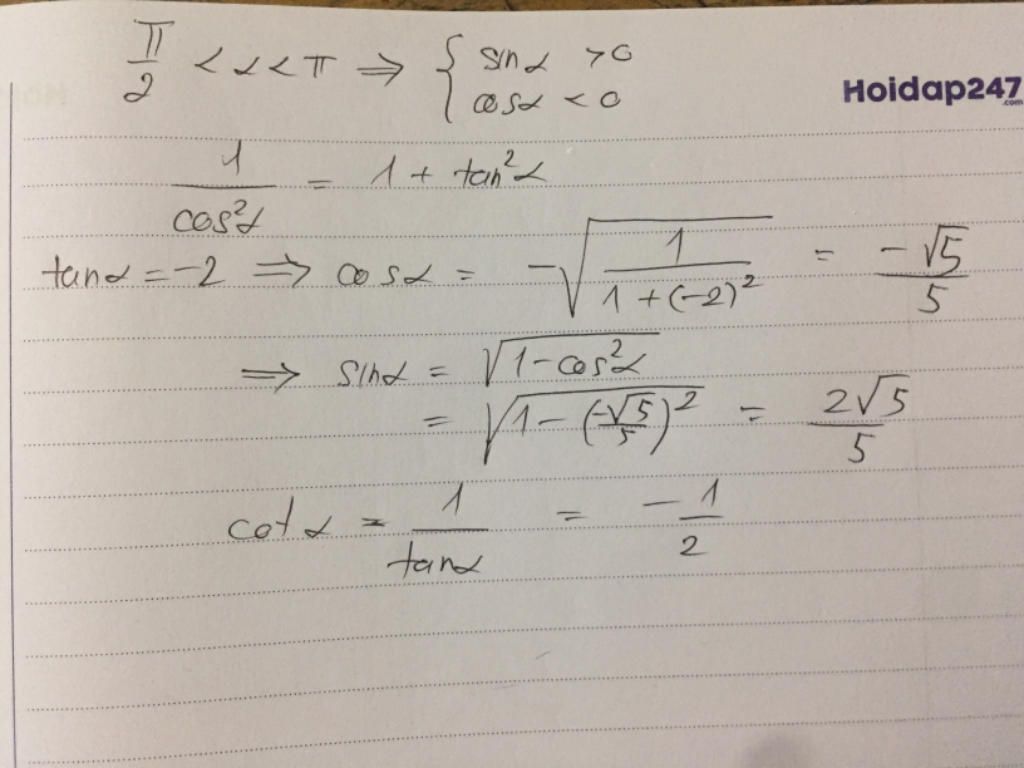 π/2 < α < π ⇒ { sinα > 0
{ cosα < 0
Hoidap247.com
1/cos²α = 1 + tan²α
tanα = -2 ⇒ cosα = -√(1/(1+(-2)²)) = -√5/5
⇒ sinα = √(1-cos²α)
= √(1-(-√5/5)²) = 2√5/5
cotα = 1/tanα = -1/2